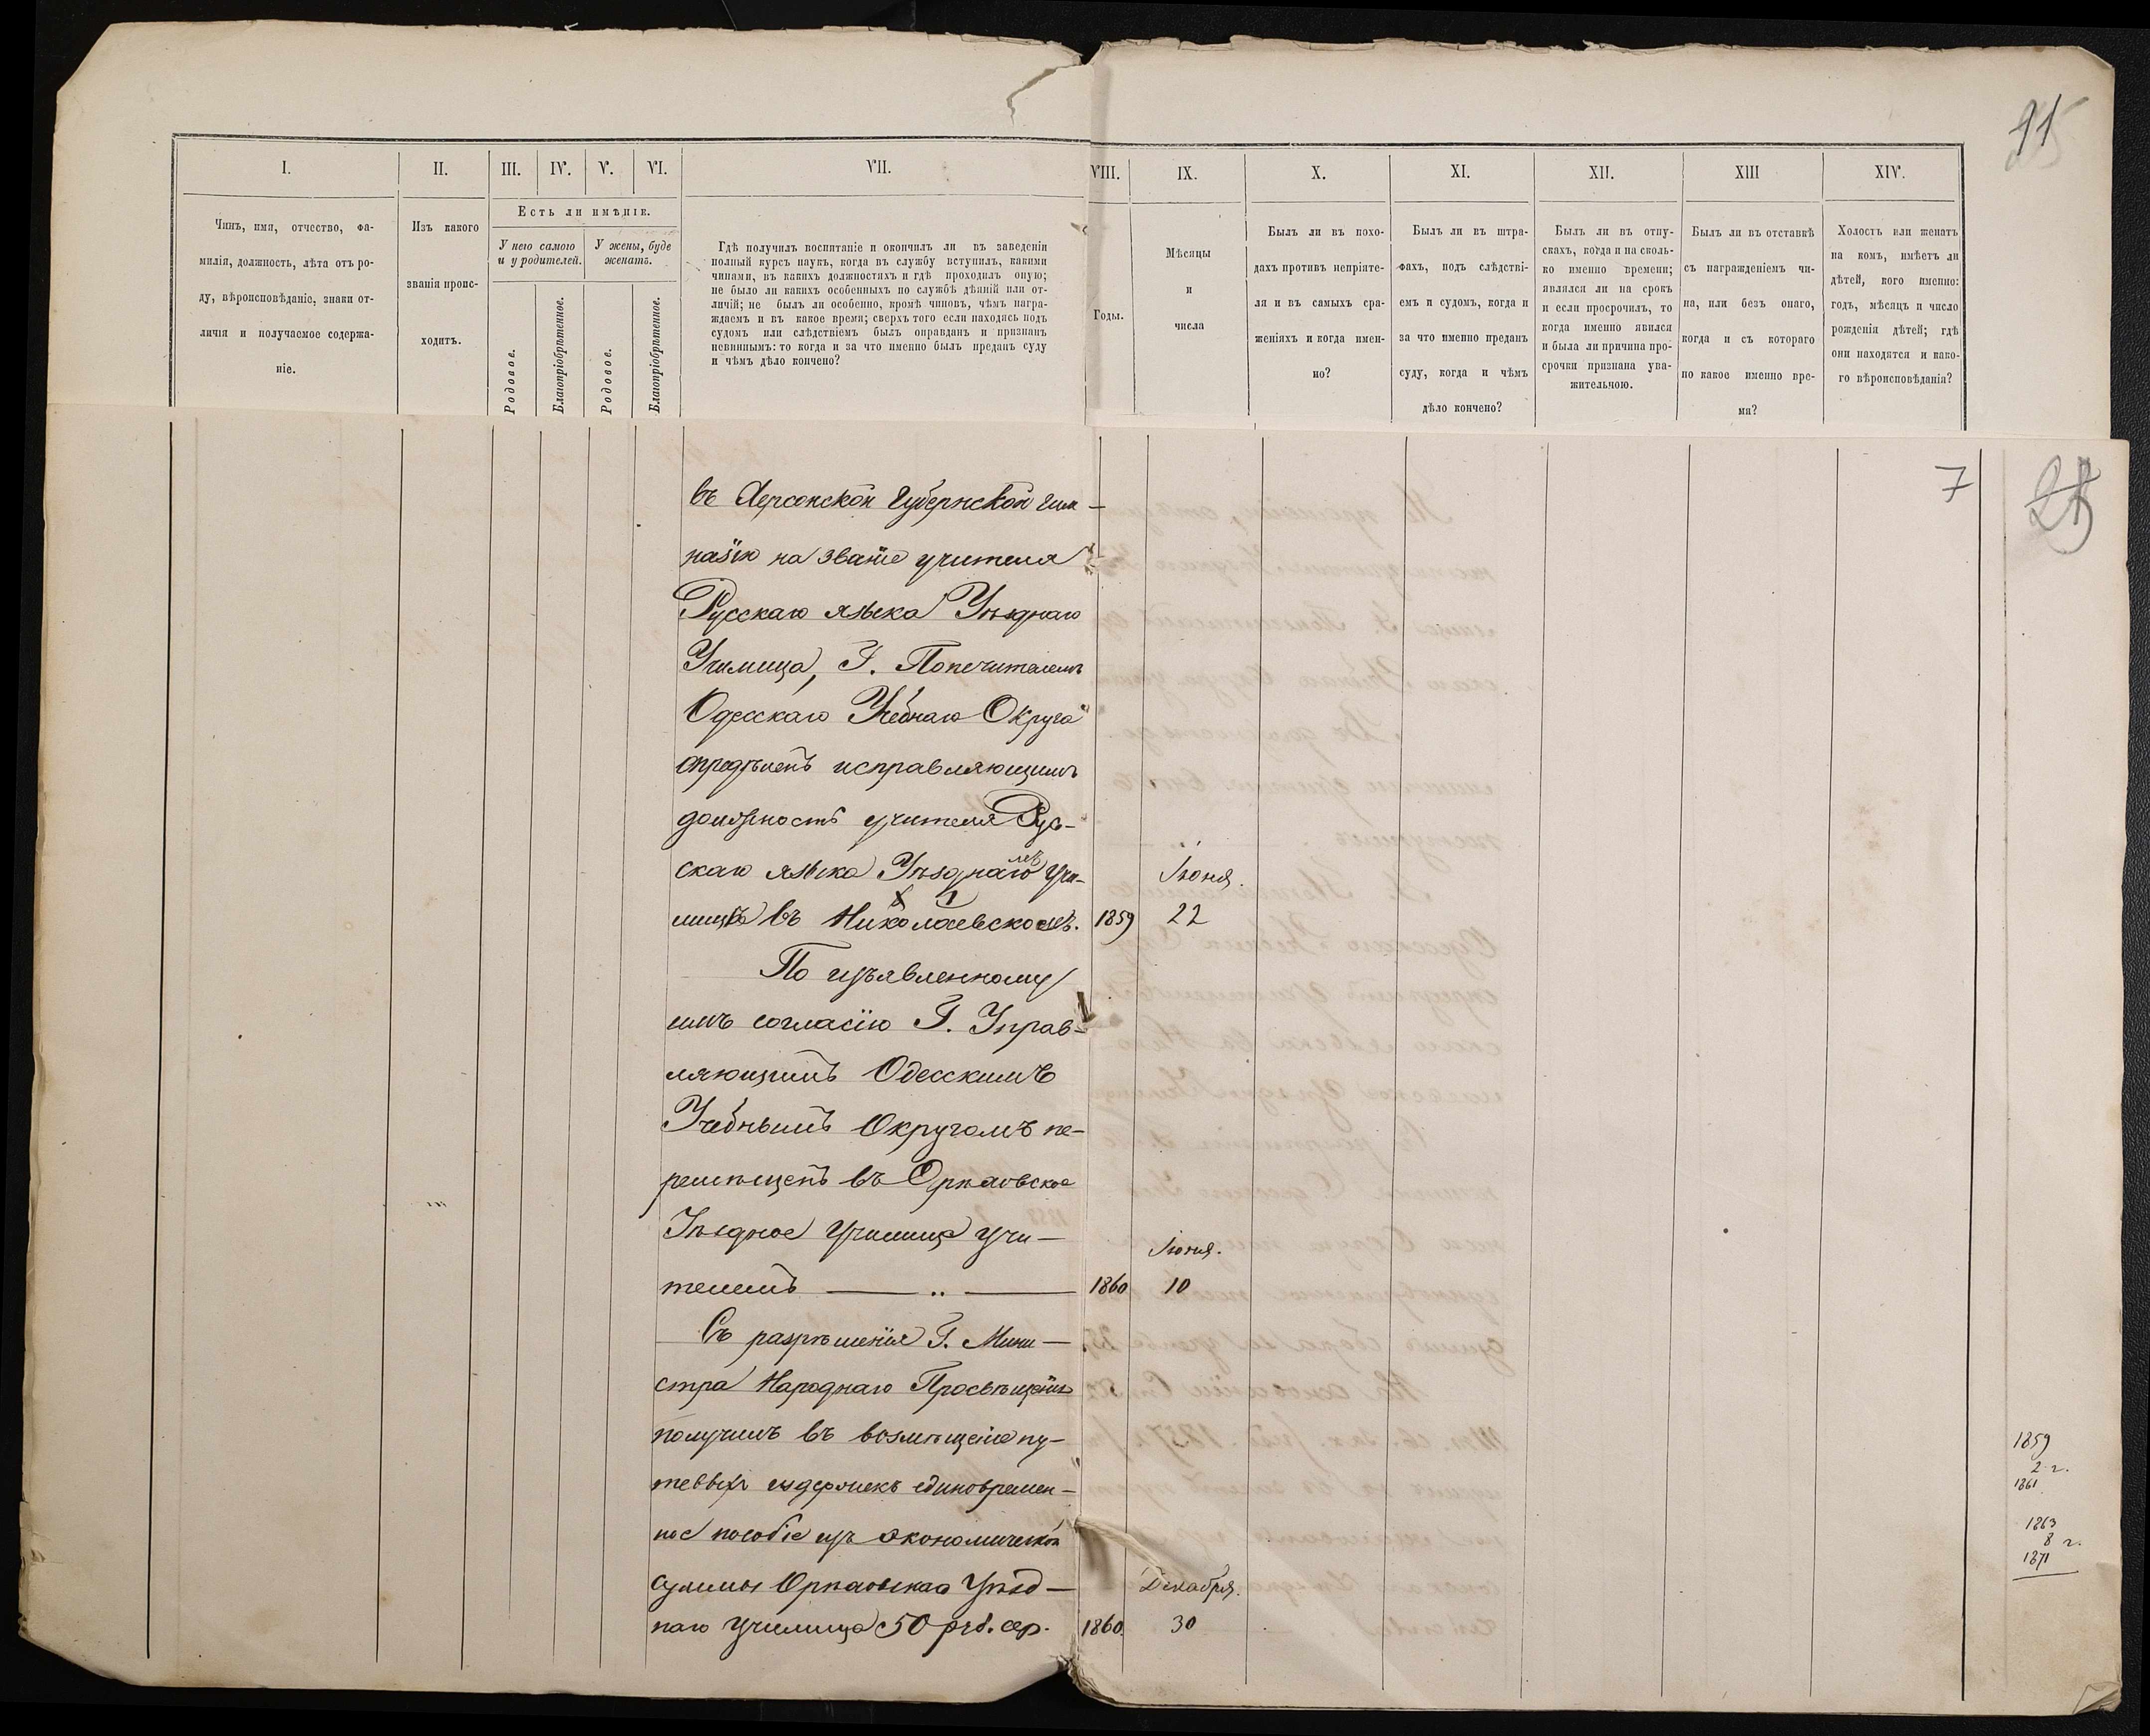 11
I.
II.
III.
IV.
V.
VI.
VII.
VIII.
IX.
X.
XI.
XII.
XIII
XIV.
Чинъ, имя, отчество, фа-
милія, должность, лѣта отъ ро-
ду, вѣроисповѣданіе, знаки от-
личія и получаемое содержа-
ніе.
Изъ какого
званія проис-
ходитъ.
Есть ли имѣніе.
У него самого
и у родителей.
У жены, буде
женатъ.
Родовое.
Благопріобрѣтенное.
Родовое.
Благопріобрѣтенное.
Гдѣ получилъ воспитаніе и окончилъ ли въ заведеніи
полный курсъ наукъ, когда въ службу вступилъ, какими
чинами, въ какихъ должностяхъ и гдѣ проходилъ оную;
не было ли какихъ особенныхъ по службѣ дѣяній или от-
личій; не былъ ли особенно, кромѣ чиновъ, чѣмъ награ-
ждаемъ и въ какое время; сверхъ того если находясь подъ
судомъ или слѣдствіемъ былъ оправданъ и признанъ
невиннымъ: то когда и за что именно былъ преданъ суду
и чѣмъ дѣло кончено?
Годы.
Мѣсяцы
и
числа
Былъ ли въ похо-
дахъ противъ непріяте-
ля и въ самыхъ сра-
женіяхъ и когда имен-
но?
Былъ ли въ штра-
фахъ, подъ слѣдстві-
емъ и судомъ, когда и
за что именно преданъ
суду, когда и чѣмъ
дѣло кончено?
Былъ ли въ отпу-
скахъ, когда и на сколь-
ко именно времени;
являлся ли на срокъ
и если просрочилъ, то
когда именно явился
и была ли причина про-
срочки признана ува-
жительною.
Былъ ли въ отставкѣ
съ награжденіемъ чи-
на, или безъ онаго,
когда и съ котораго
по какое именно вре-
мя?
Холостъ или женатъ
на комъ, имѣетъ ли
дѣтей, кого именно:
годъ, мѣсяцъ и число
рожденія дѣтей; гдѣ
они находятся и како-
го вѣроисповѣданія?
7
въ Херсонской Губернской Гим-
назіи на званіе учителя
Русскаго языка Уѣзднаго
Училища, Г. Попечителемъ
Одесскаго Учебнаго Округа
опредѣленъ исправляющимъ
должность учителя Рус-
скаго языка Уѣзднаго Учи-
лища въ Николаевскомъ.
1859
Іюня.
22
По изъявленному
имъ согласію Г. Управ-
ляющимъ Одесскимъ
Учебнымъ Округомъ пе-
ремѣщенъ въ Орѣховское
Уѣздное Училище учи-
телемъ
1860
Іюня.
10
Съ разрѣшенія Г. Мини-
стра Народнаго Просвѣщенія
получилъ въ возмѣщеніе пу-
тевыхъ издержекъ единовремен-
ное пособіе изъ экономической
суммы Орѣховскаго Уѣзд-
наго училища 50 руб. сер.
1860.
Декабря.
30
1859
2 г.
1861
1863
8 г.
1871